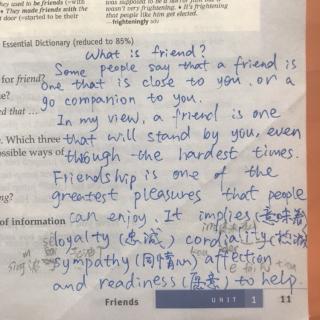 they used to be friends (=with
• They made friends with the
t door (=started to be their
wasn't very frightening. • It's frightening
that people like him get elected.
frighteningly adv
Essential Dictionary (reduced to 85%)
What is friend?
for friend?
Some people say that a friend is
one that is close to you, or a
go companion to you.
ed that ...
In my view, a friend is one
. Which three
that will stand by you, even
ossible ways of
though the hardest times.
Friendship is one of the
greatest pleasures that people
ng?
of information
can enjoy. It implies (意味着)
loyalty (忠诚) cordiality
sympathy (同情心) affection
and readiness (愿意) to help.
Friends UNIT 1 11